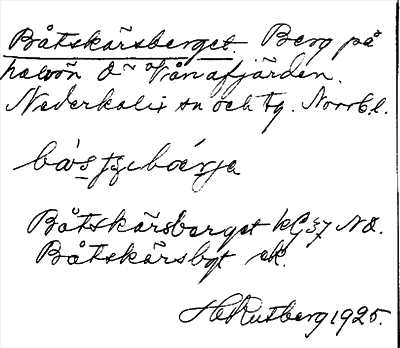 Båtskärsberget. Berg på
halvön O ~ Vånafjärden.
Nederkalix sn och tg. Norrb. l.
Båtskärsberget kG 37 NO.
Båtskärsbgt ek.
H Rutberg 1925.